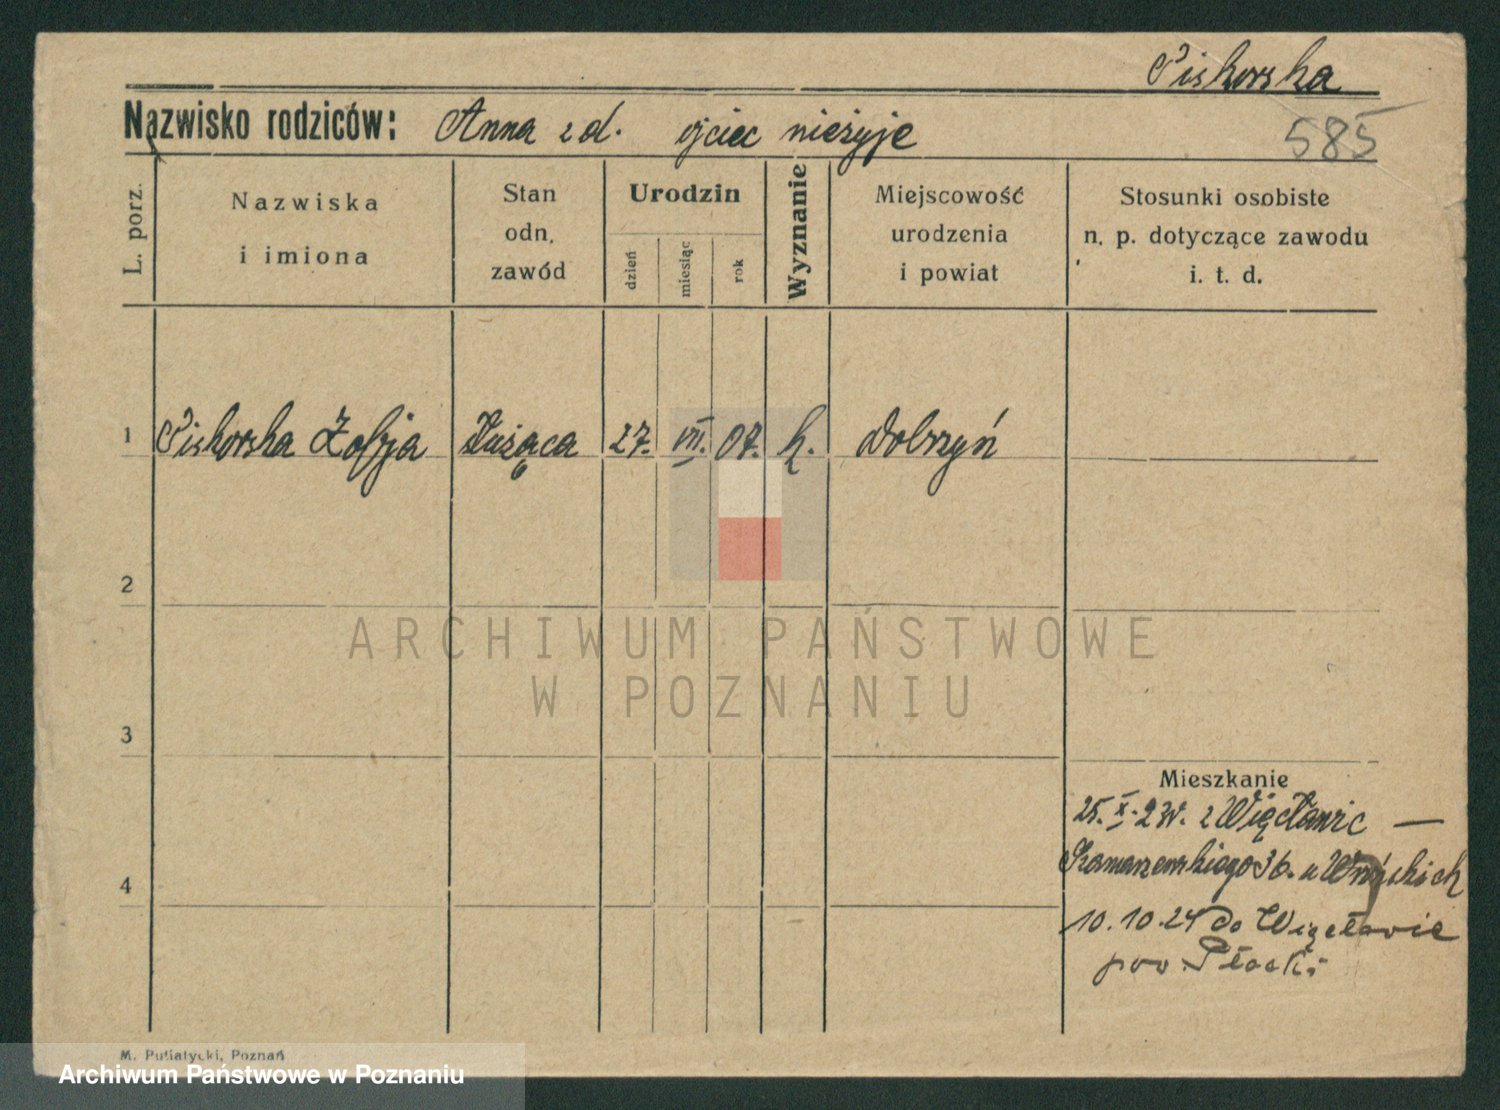 Piskorska
Nazwisko rodziców: Anna z d. ojciec nieżyje
585
L. porz.
Nazwiska
i imiona
Stan
odn.
zawód
Urodzin
dzień
miesiąc
rok
Wyznanie
Miejscowość
urodzenia
i powiat
Stosunki osobiste
n. p. dotyczące zawodu
i. t. d.
1 Piskorska Zofja służąca 27. VII. 07. k. Dobrzyń
2
3
4
Mieszkanie
25. X. 23 z Więcławic —
36. u
10.10.24 do Więcławic
pow. Płocki
M. Putiatycki, Poznań
ARCHIWUM PAŃSTWOWE
W POZNANIU
Archiwum Państwowe w Poznaniu